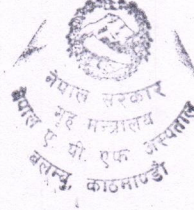 नेपाल सरकार
गृह मन्त्रालय
नेपाल ए. पी. एफ अस्पताल
बलम्बु, काठमाण्डौ